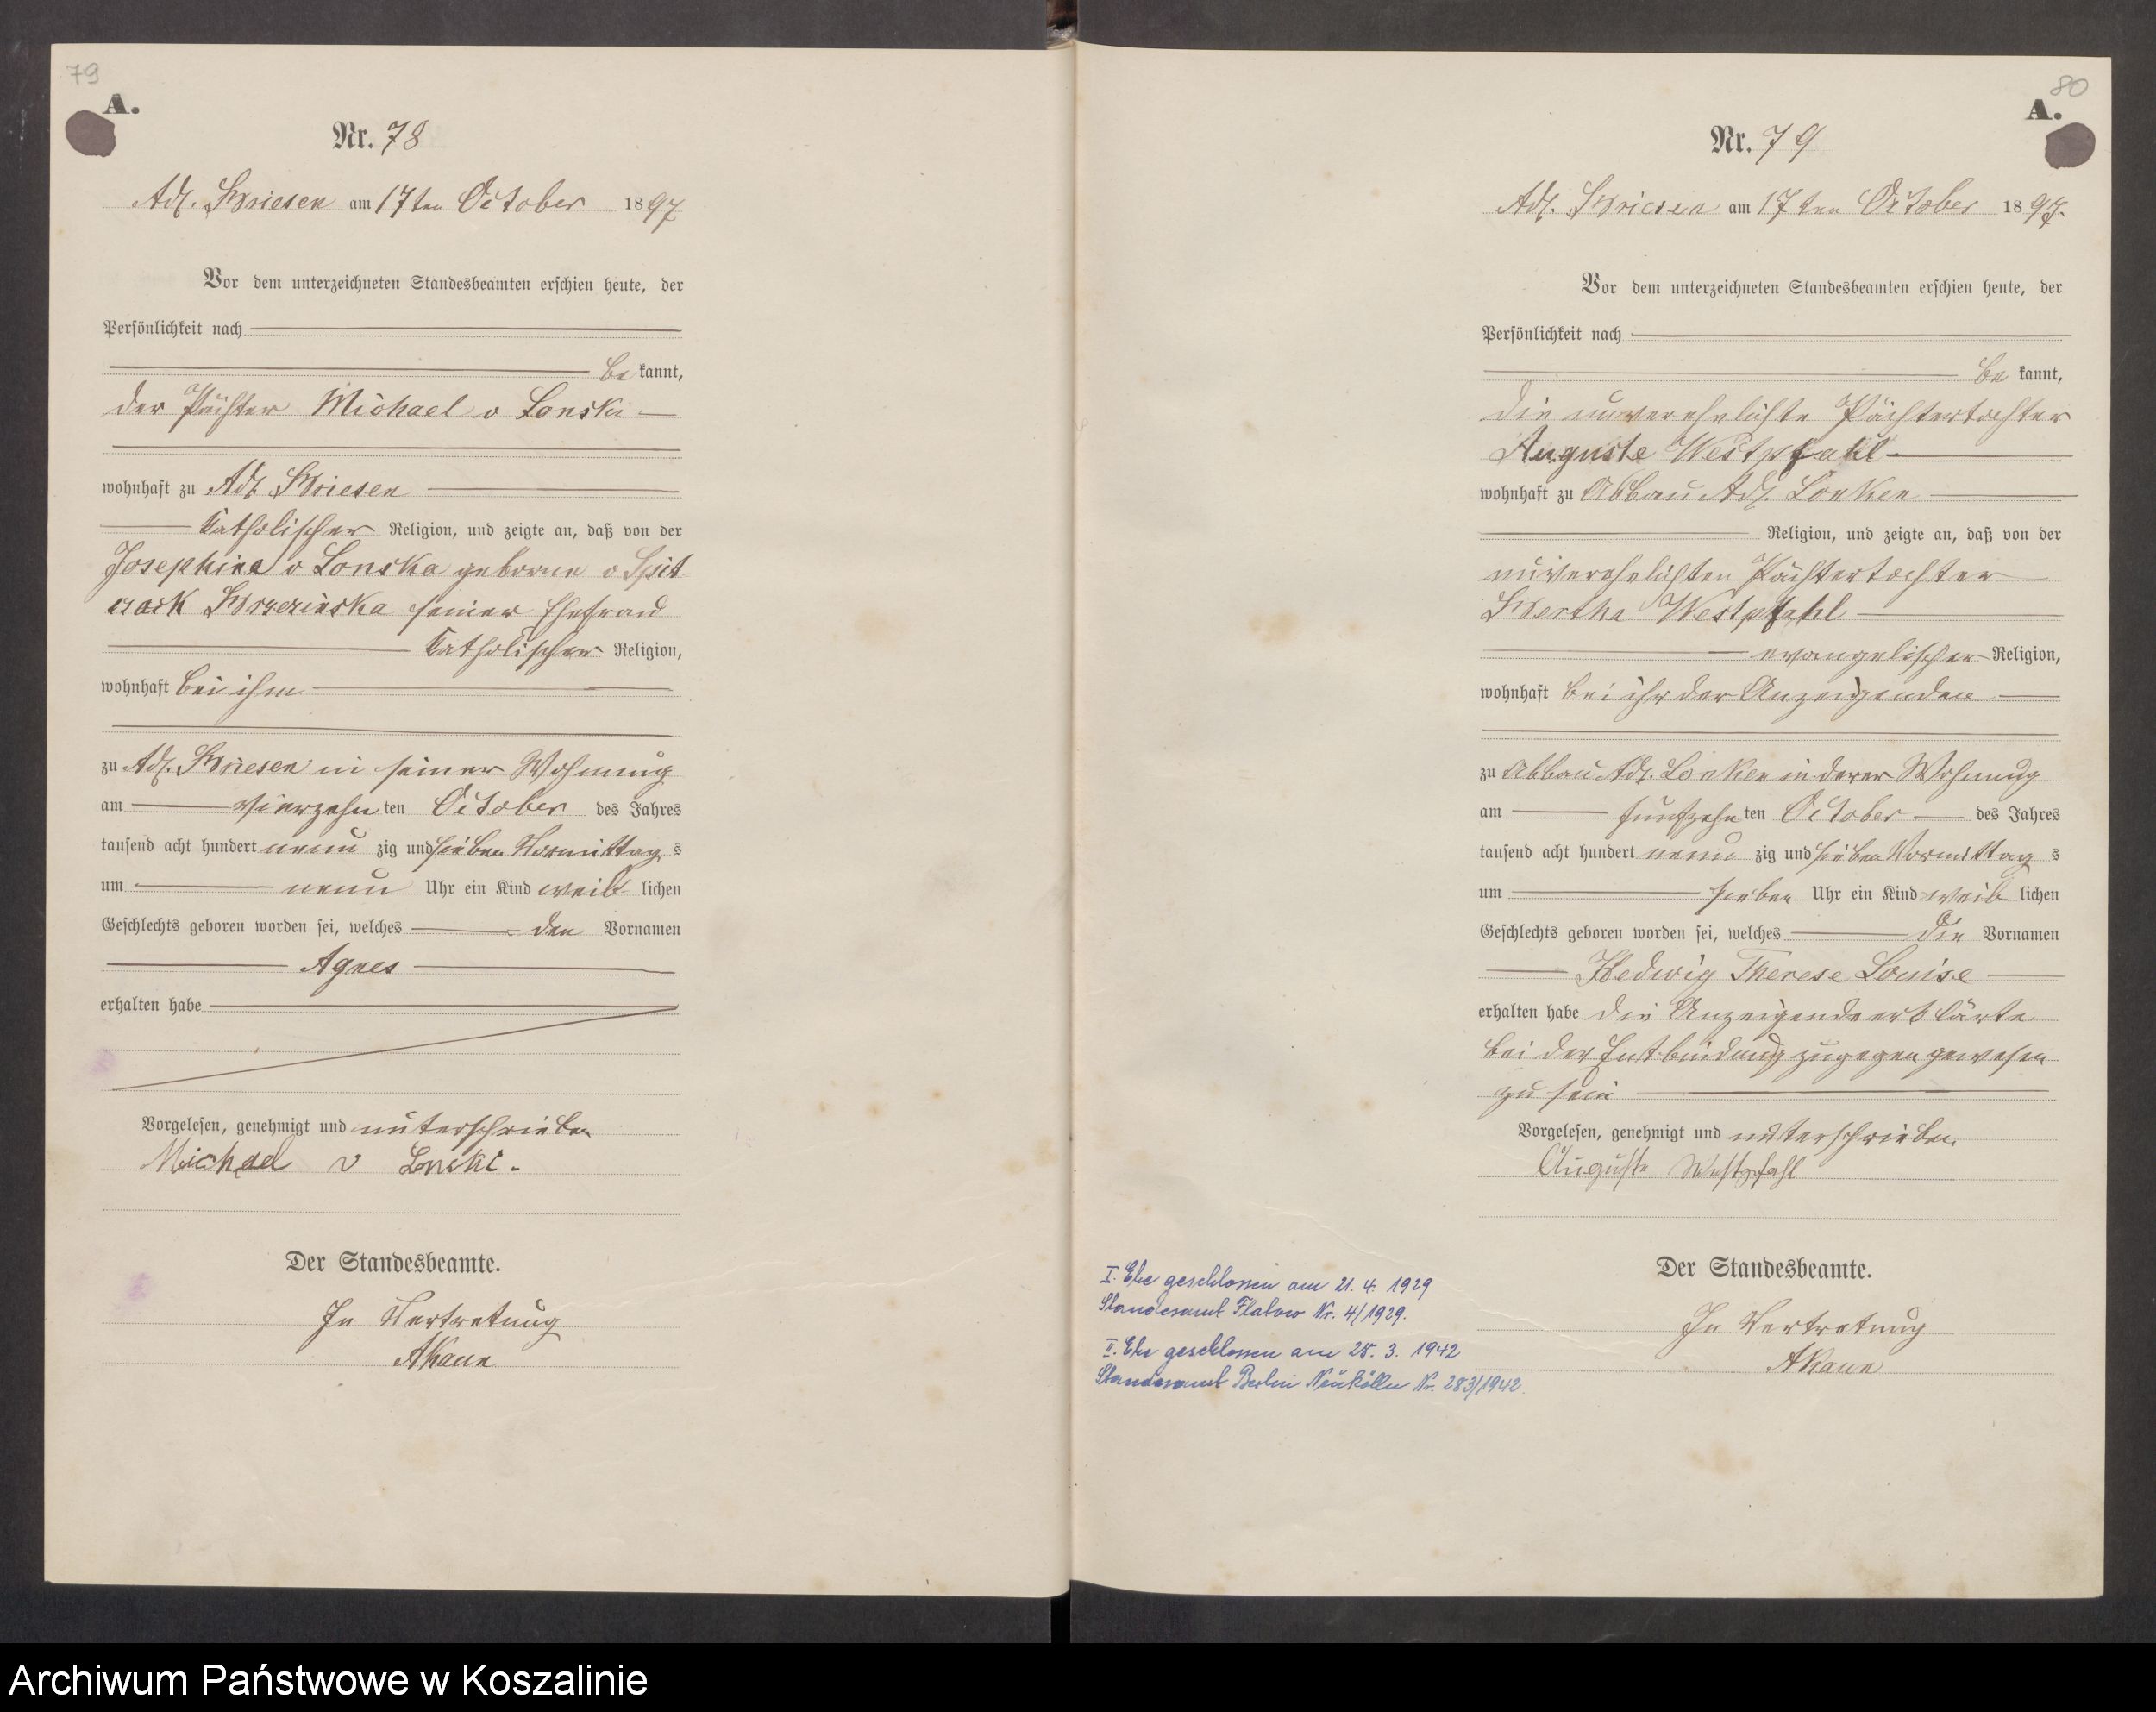 79
A.
Nr. 78
Adl. Briesen am 17ten October 1897
Vor dem unterzeichneten Standesbeamten erschien heute, der
Persönlichkeit nach
be kannt,
der Pächter Michael v Lonski
wohnhaft zu Adl Briesen
katholischer Religion, und zeigte an, daß von der
Josephine v Lonska geborne v Spit
czack Brzezinska seiner Ehefrau
katholischer Religion,
wohnhaft bei ihm
zu Adl. Briesen in seiner Wohnung
am vierzehn ten October des Jahres
tausend acht hundert neun zig und sieben Vormittag s
um neun Uhr ein Kind weib lichen
Geschlechts geboren worden sei, welches den Vornamen
Agnes
erhalten habe
Vorgelesen, genehmigt und unterschrieben
Michael v Lonski.
Der Standesbeamte.
In Vertretung
80
A.
Nr. 79
Adl. Briesen am 17ten October 1897.
Vor dem unterzeichneten Standesbeamten erschien heute, der
Persönlichkeit nach
be kannt,
die unverehelichte Pächtertochter
Auguste Westpfahl
wohnhaft zu Abbau Adl. Lonken
Religion, und zeigte an, daß von der
unverehelichten Pächtertochter
Bertha Westpfahl
evangelischer Religion,
wohnhaft bei ihr der Anzeigenden
zu Abbau Adl. Lonken in derer Wohnung
am funfzehn ten October des Jahres
tausend acht hundert neun zig und sieben Vormittag s
um sieben Uhr ein Kind weib lichen
Geschlechts geboren worden sei, welches die Vornamen
Hedwig Therese Louise
erhalten habe die Anzeigende erklärte
bei der Entbindung zugegen gewesen
zu sein
Vorgelesen, genehmigt und unterschrieben.
Auguste Westpfahl
Der Standesbeamte.
In Vertretung
I. Ehe geschlossen am 21. 4. 1929
Standesamt Flatow Nr. 4/1929.
II. Ehe geschlossen am 28. 3. 1942
Standesamt Berlin Neukölln Nr. 283/1942.
Archiwum Państwowe w Koszalinie